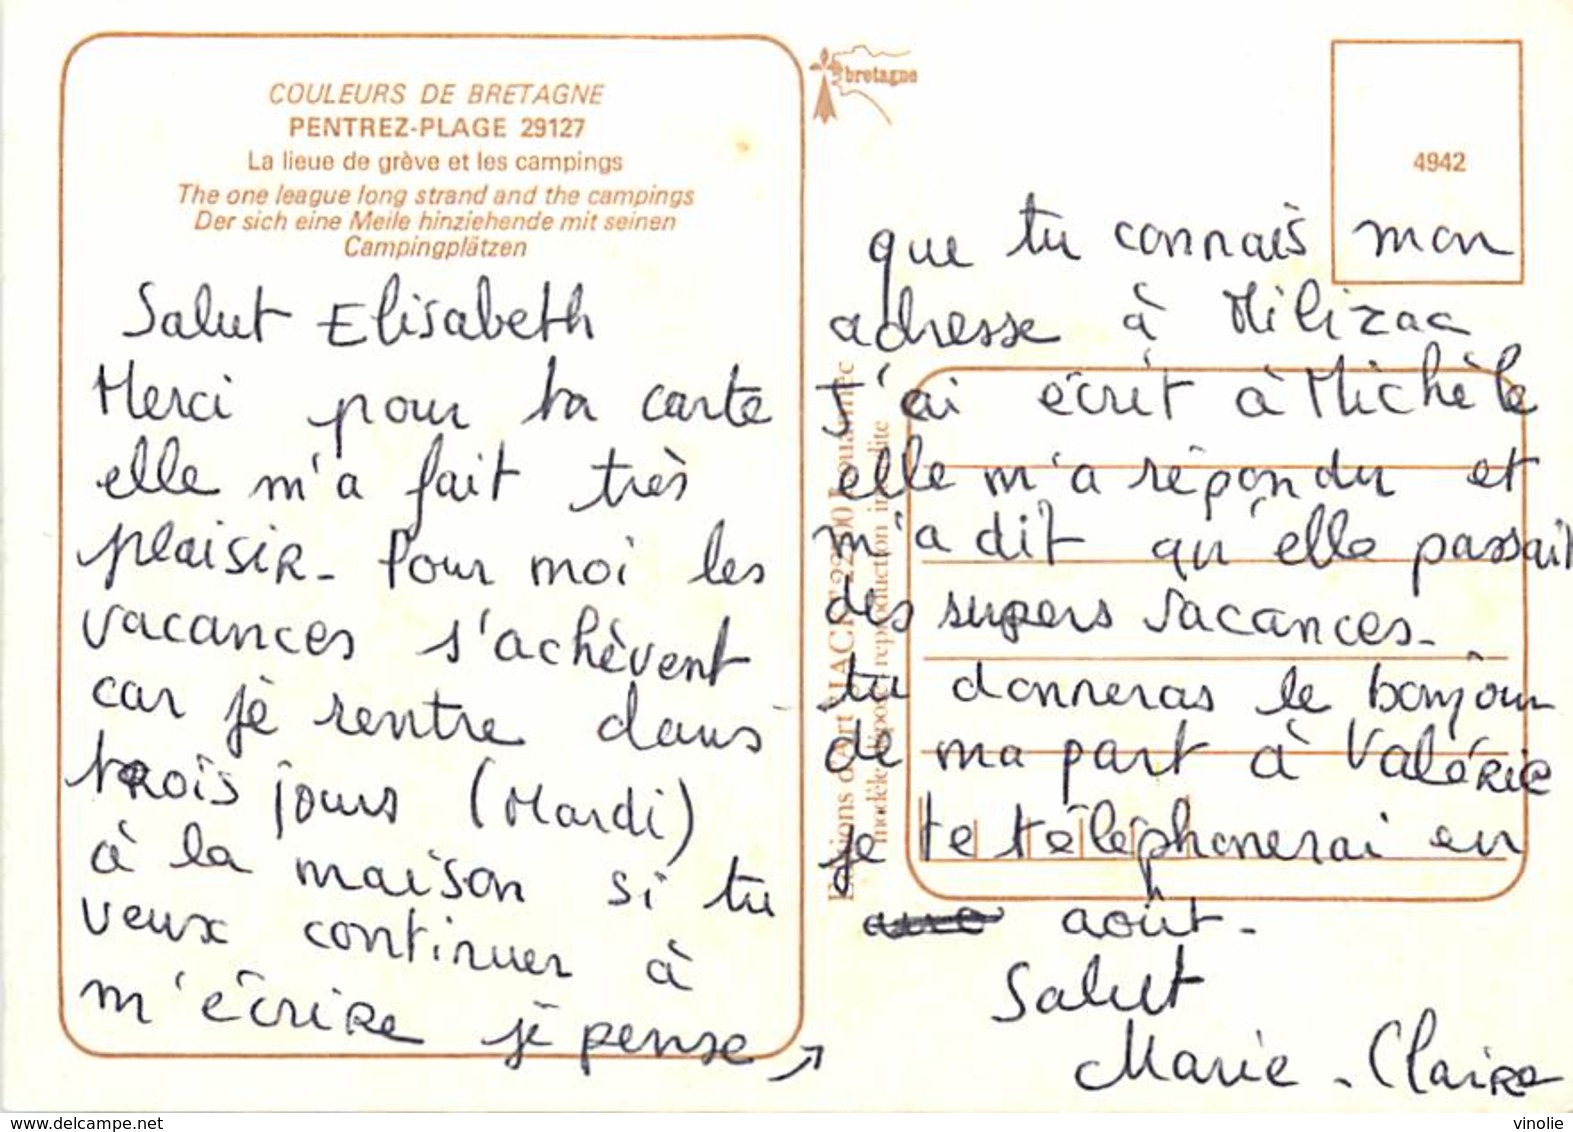 COULEURS DE BRETAGNE
PENTREZ-PLAGE 29127
La lieue de grève et les campings
The one league long strand and the campings
Der sich eine Meile hinziehende mit seinen
Campingplätzen
Salut Elisabeth
Merci pour ta carte
elle m'a fait très
plaisir - Pour moi les
vacances s'achèvent
car je rentre dans
trois jours (Mardi)
à la maison si tu
veux continuer à
m'écrire je pense
bretagne
4942
que tu connais mon
adresse à Milizac
J'ai écrit à Michèle
elle m'a répondu et
m'a dit qu'elle passait
des supers vacances -
tu donneras le bonjour
de ma part à Valérie
je te téléphonerai en
août -
Salut
Marie - Claire
Editions d'Art JACK 22
modèle déposé reproduction
www.delcampe.net
vinolie